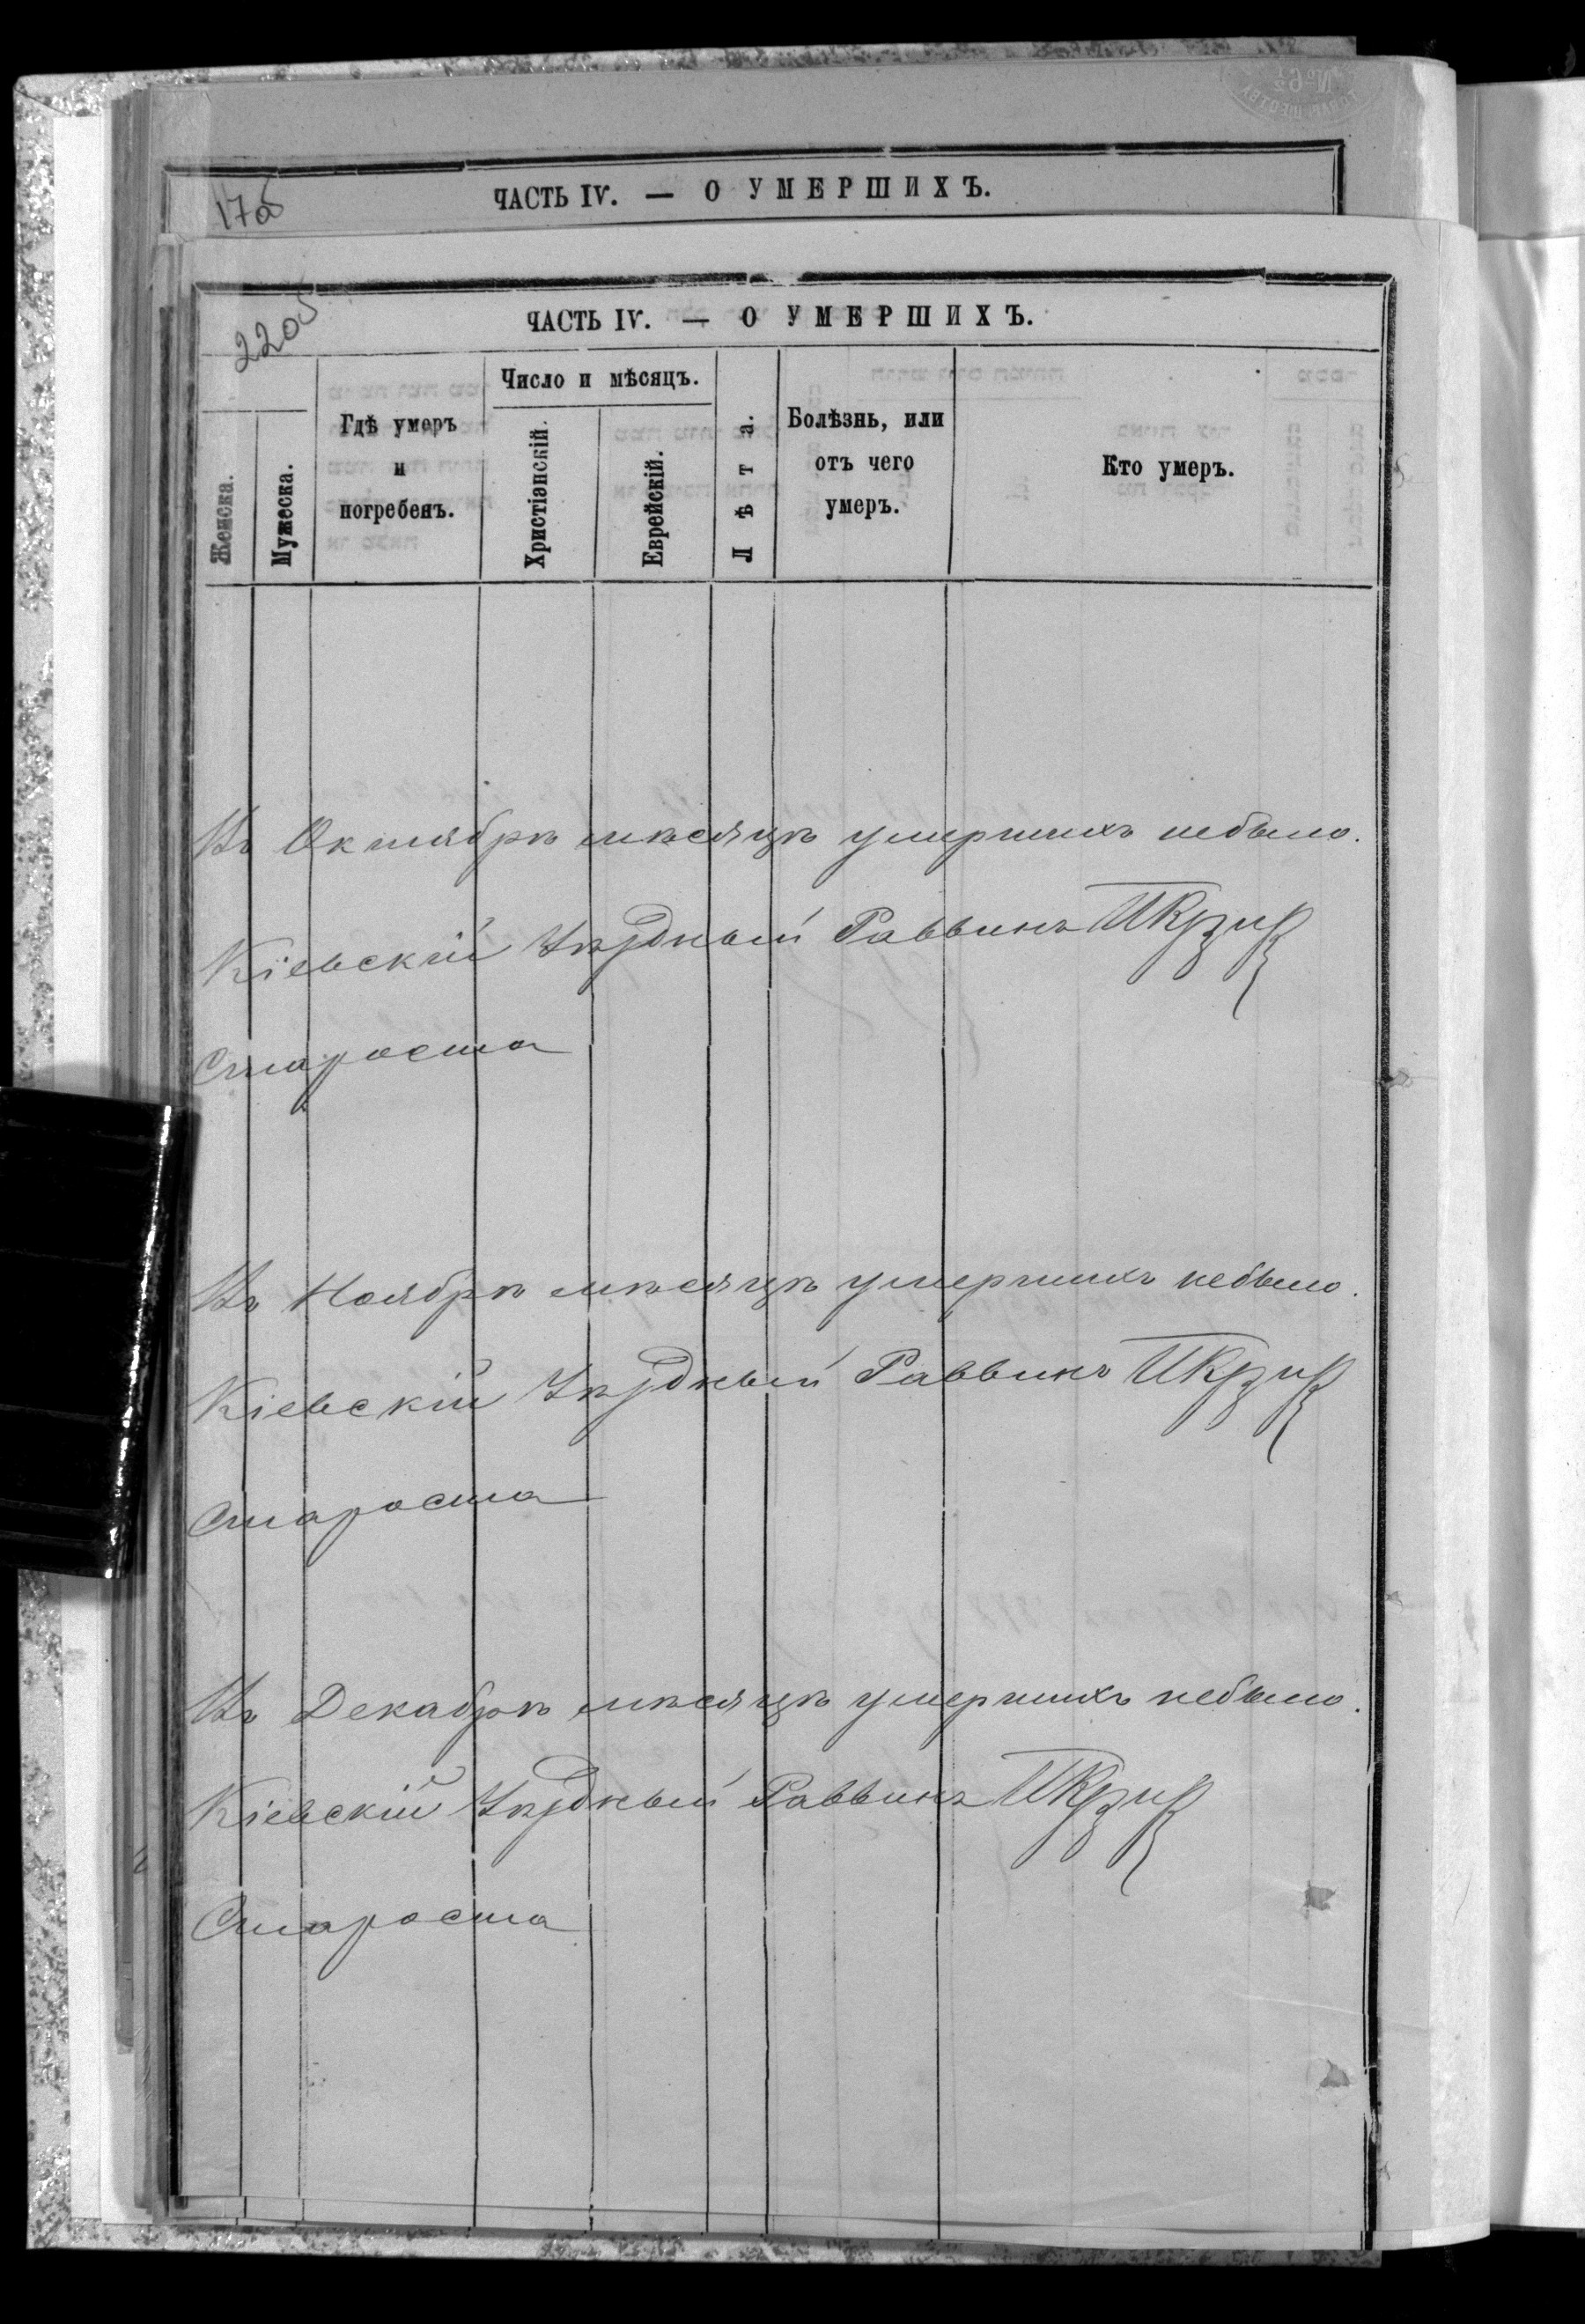 ЧАСТЬ IV. — О УМЕРШИХЪ.
ЧАСТЬ IV. — О УМЕРШИХЪ.
Женска.
Мужеска.
Гдѣ умеръ
и
погребенъ.
Число и мѣсяцъ.
Христіанскій.
Еврейскій.
Лѣта.
Болѣзнь, или
отъ чего
умеръ.
Кто умеръ.
Въ Октябрѣ мѣсяцѣ умершихъ небыло.
Кіевскій Уѣздный Раввинъ
Староста
Въ Ноябрѣ мѣсяцѣ умершихъ небыло.
Кіевскій Уѣздный Раввинъ
Староста
Въ Декабрѣ мѣсяцѣ умершихъ небыло.
Кіевскій Уѣздный Раввинъ
Староста